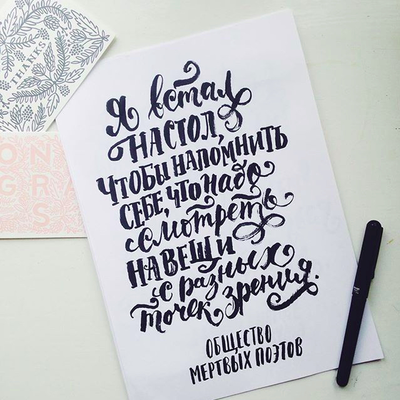 THANKS
ON
GRA
S
Я встал
НА СТОЛ,
ЧТОБЫ НАПОМНИТЬ
СЕБЕ, ЧТО НАДО
СМОТРЕТЬ
НА ВЕЩИ
с разных
точек зрения.
ОБЩЕСТВО
МЕРТВЫХ ПОЭТОВ